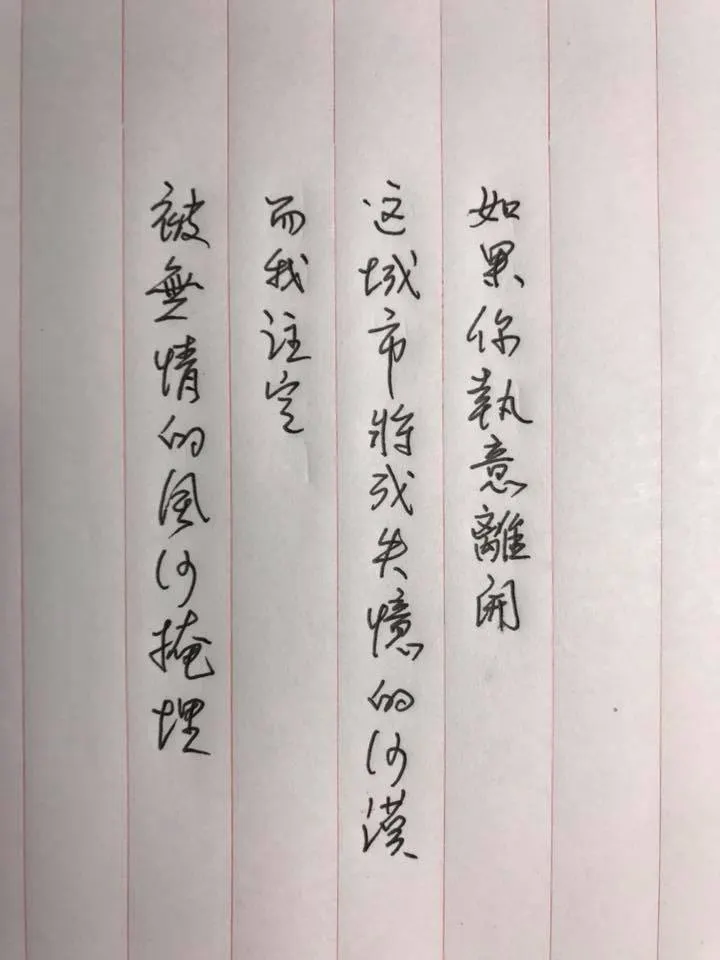 如果你執意離開
这城市將成失憶的沙漠
而我註定
被無情的風沙掩埋